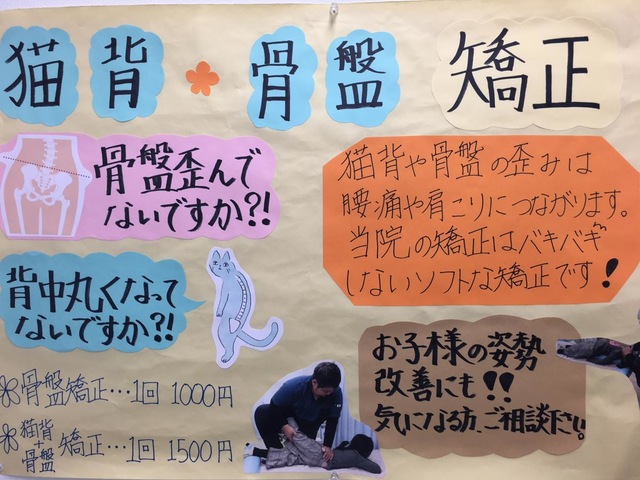 猫背・骨盤 矯正
骨盤歪んで
ないですか?!
猫背や骨盤の歪みは
腰痛や肩こりにつながります。
当院の矯正はバキバキ
しないソフトな矯正です!
背中丸くなって
ないですか?!
お子様の姿勢
改善にも!!
気になる方、ご相談下さい。
骨盤矯正…1回 1000円
猫背+骨盤 矯正…1回 1500円